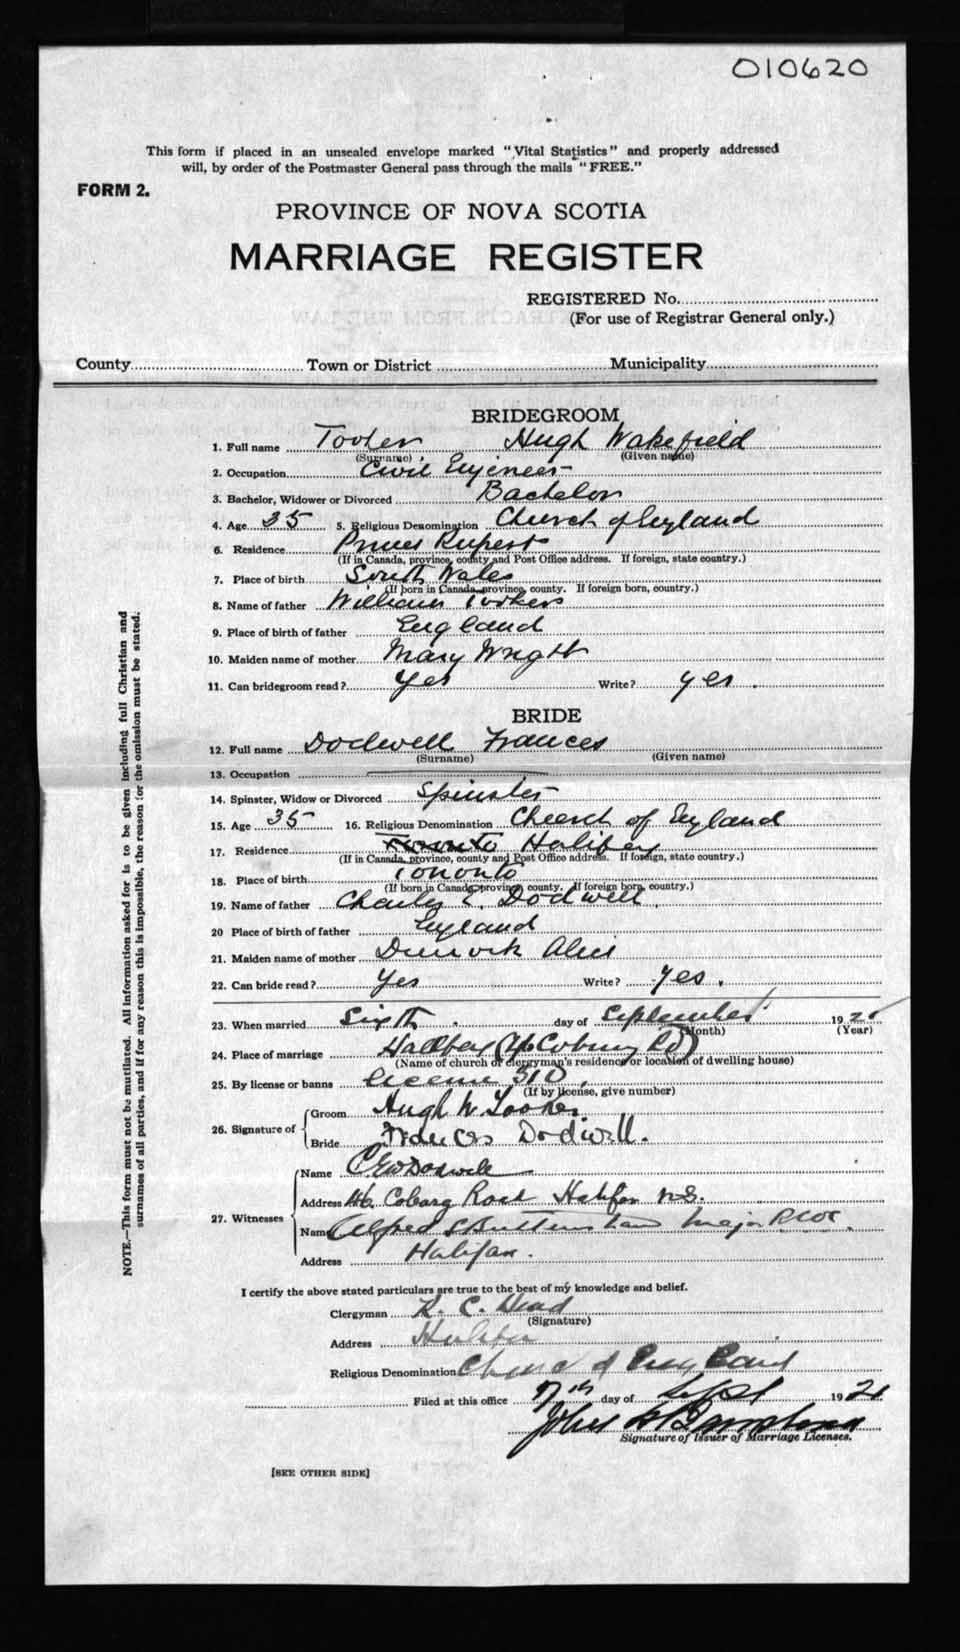 010620
This form if placed in an unsealed envelope marked "Vital Statistics" and properly addressed
will, by order of the Postmaster General pass through the mails "FREE."
FORM 2.
PROVINCE OF NOVA SCOTIA
MARRIAGE REGISTER
REGISTERED No.
(For use of Registrar General only.)
County Town or District Municipality
BRIDEGROOM
1. Full name Tooker Hugh Wakefield
(Surname) (Given name)
2. Occupation Civil Engineer
3. Bachelor, Widower or Divorced Bachelor
4. Age 35 5. Religious Denomination Church of England
6. Residence Prince Rupert
(If in Canada, province, county and Post Office address. If foreign, state country.)
7. Place of birth South Wales
(If born in Canada, province, county. If foreign born, country.)
8. Name of father William Tooker
9. Place of birth of father England
10. Maiden name of mother Mary Wright
11. Can bridegroom read? Yes Write? yes.
BRIDE
12. Full name Dodwell Frances
(Surname) (Given name)
13. Occupation
14. Spinster, Widow or Divorced Spinster
15. Age 35 16. Religious Denomination Church of England
17. Residence Toronto Halifax
(If in Canada, province, county and Post Office address. If foreign, state country.)
18. Place of birth Toronto
(If born in Canada, province, county. If foreign born, country.)
19. Name of father Charles E. Dodwell.
20 Place of birth of father England
21. Maiden name of mother Alice
22. Can bride read? Yes Write? Yes.
23. When married Sixth day of September 192
(Month) (Year)
24. Place of marriage Halifax (46 Coburg Rd)
(Name of church or clergyman's residence or location of dwelling house)
25. By license or banns license 510.
(If by license, give number)
26. Signature of
Groom Hugh W. Tooker
Bride Frances Dodwell.
27. Witnesses
Name Dodwell
Address 46 Coburg Road Halifax N.S.
Name Alfred Major
Address Halifax.
I certify the above stated particulars are true to the best of my knowledge and belief.
Clergyman C. Hind
(Signature)
Address Halifax
Religious Denomination Church of England
Filed at this office 7th day of Sept 192
John
Signature of Issuer of Marriage Licenses.
[SEE OTHER SIDE]
NOTE.—This form must not be mutilated. All information asked for is to be given including full Christian and
surnames of all parties, and if for any reason this is impossible, the reason for the omission must be stated.